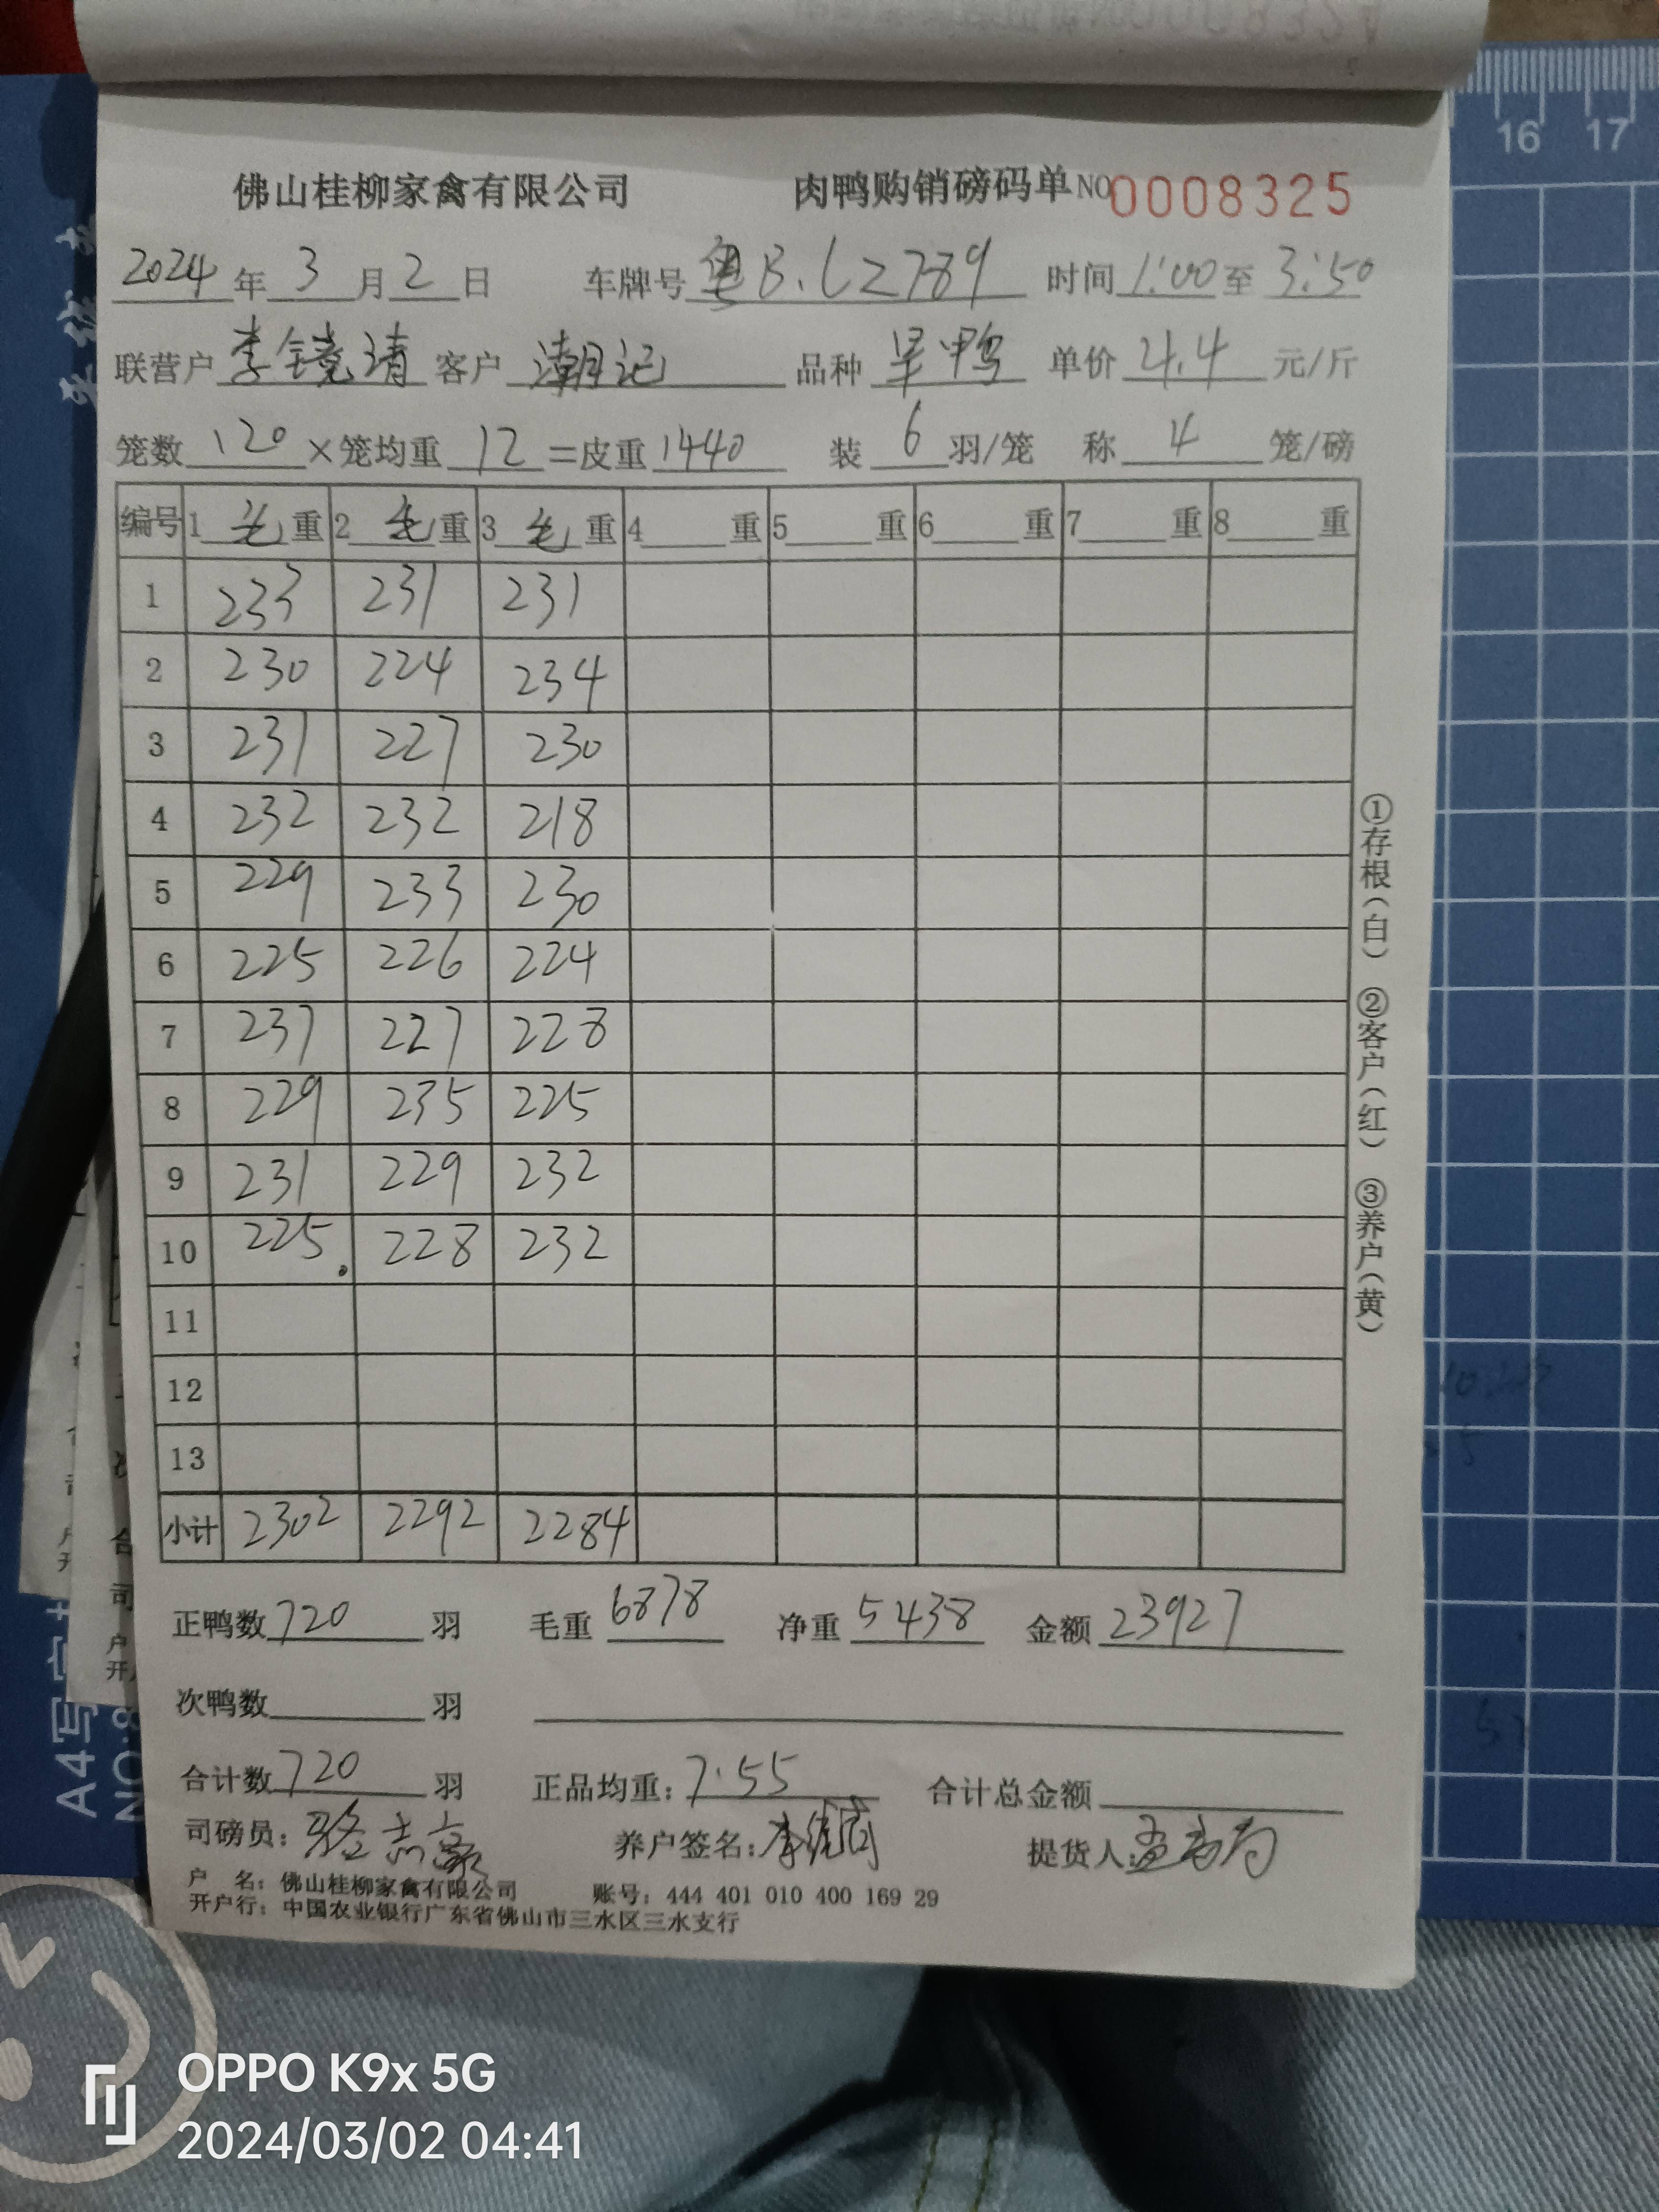 佛山桂柳家禽有限公司 肉鸭购销磅码单 NO 0008325
2024年3月2日 车牌号 粤B.L2789 时间1:00至3:50
联营户 李镜清 客户 潮记 品种 旱鸭 单价 4.4 元/斤
笼数 120 ×笼均重 12 =皮重 1440 装 6 羽/笼 称 4 笼/磅
编号 1 毛重 2 毛重 3 毛重 4 重 5 重 6 重 7 重 8 重
1 233 231 231
2 230 224 234
3 231 227 230
4 232 232 218
5 229 233 230
6 225 226 224
7 237 227 228
8 229 235 225
9 231 229 232
10 225 228 232
11
12
13
小计 2302 2292 2284
正鸭数 720 羽 毛重 6878 净重 5438 金额 23927
次鸭数 羽
合计数 720 羽 正品均重：7.55 合计总金额
司磅员： 养户签名： 提货人：
户 名：佛山桂柳家禽有限公司 账号：444 401 010 400 169 29
开户行：中国农业银行广东省佛山市三水区三水支行
①存根（白） ②客户（红） ③养户（黄）
16 17
OPPO K9x 5G
2024/03/02 04:41